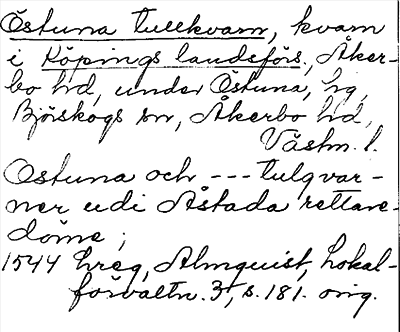 Östuna tullkvarn, kvarn
i Köpings landsförs., Åker-
bo hd, under Östuna, hg,
Björskogs sn, Åkerbo hd,
Västm. l.
Ostuna och --- tulqvar-
ner udi Åstada rettare-
döme;
1544 hreg, Almquist, Lokal-
förvaltn. 3, s. 181. orig.